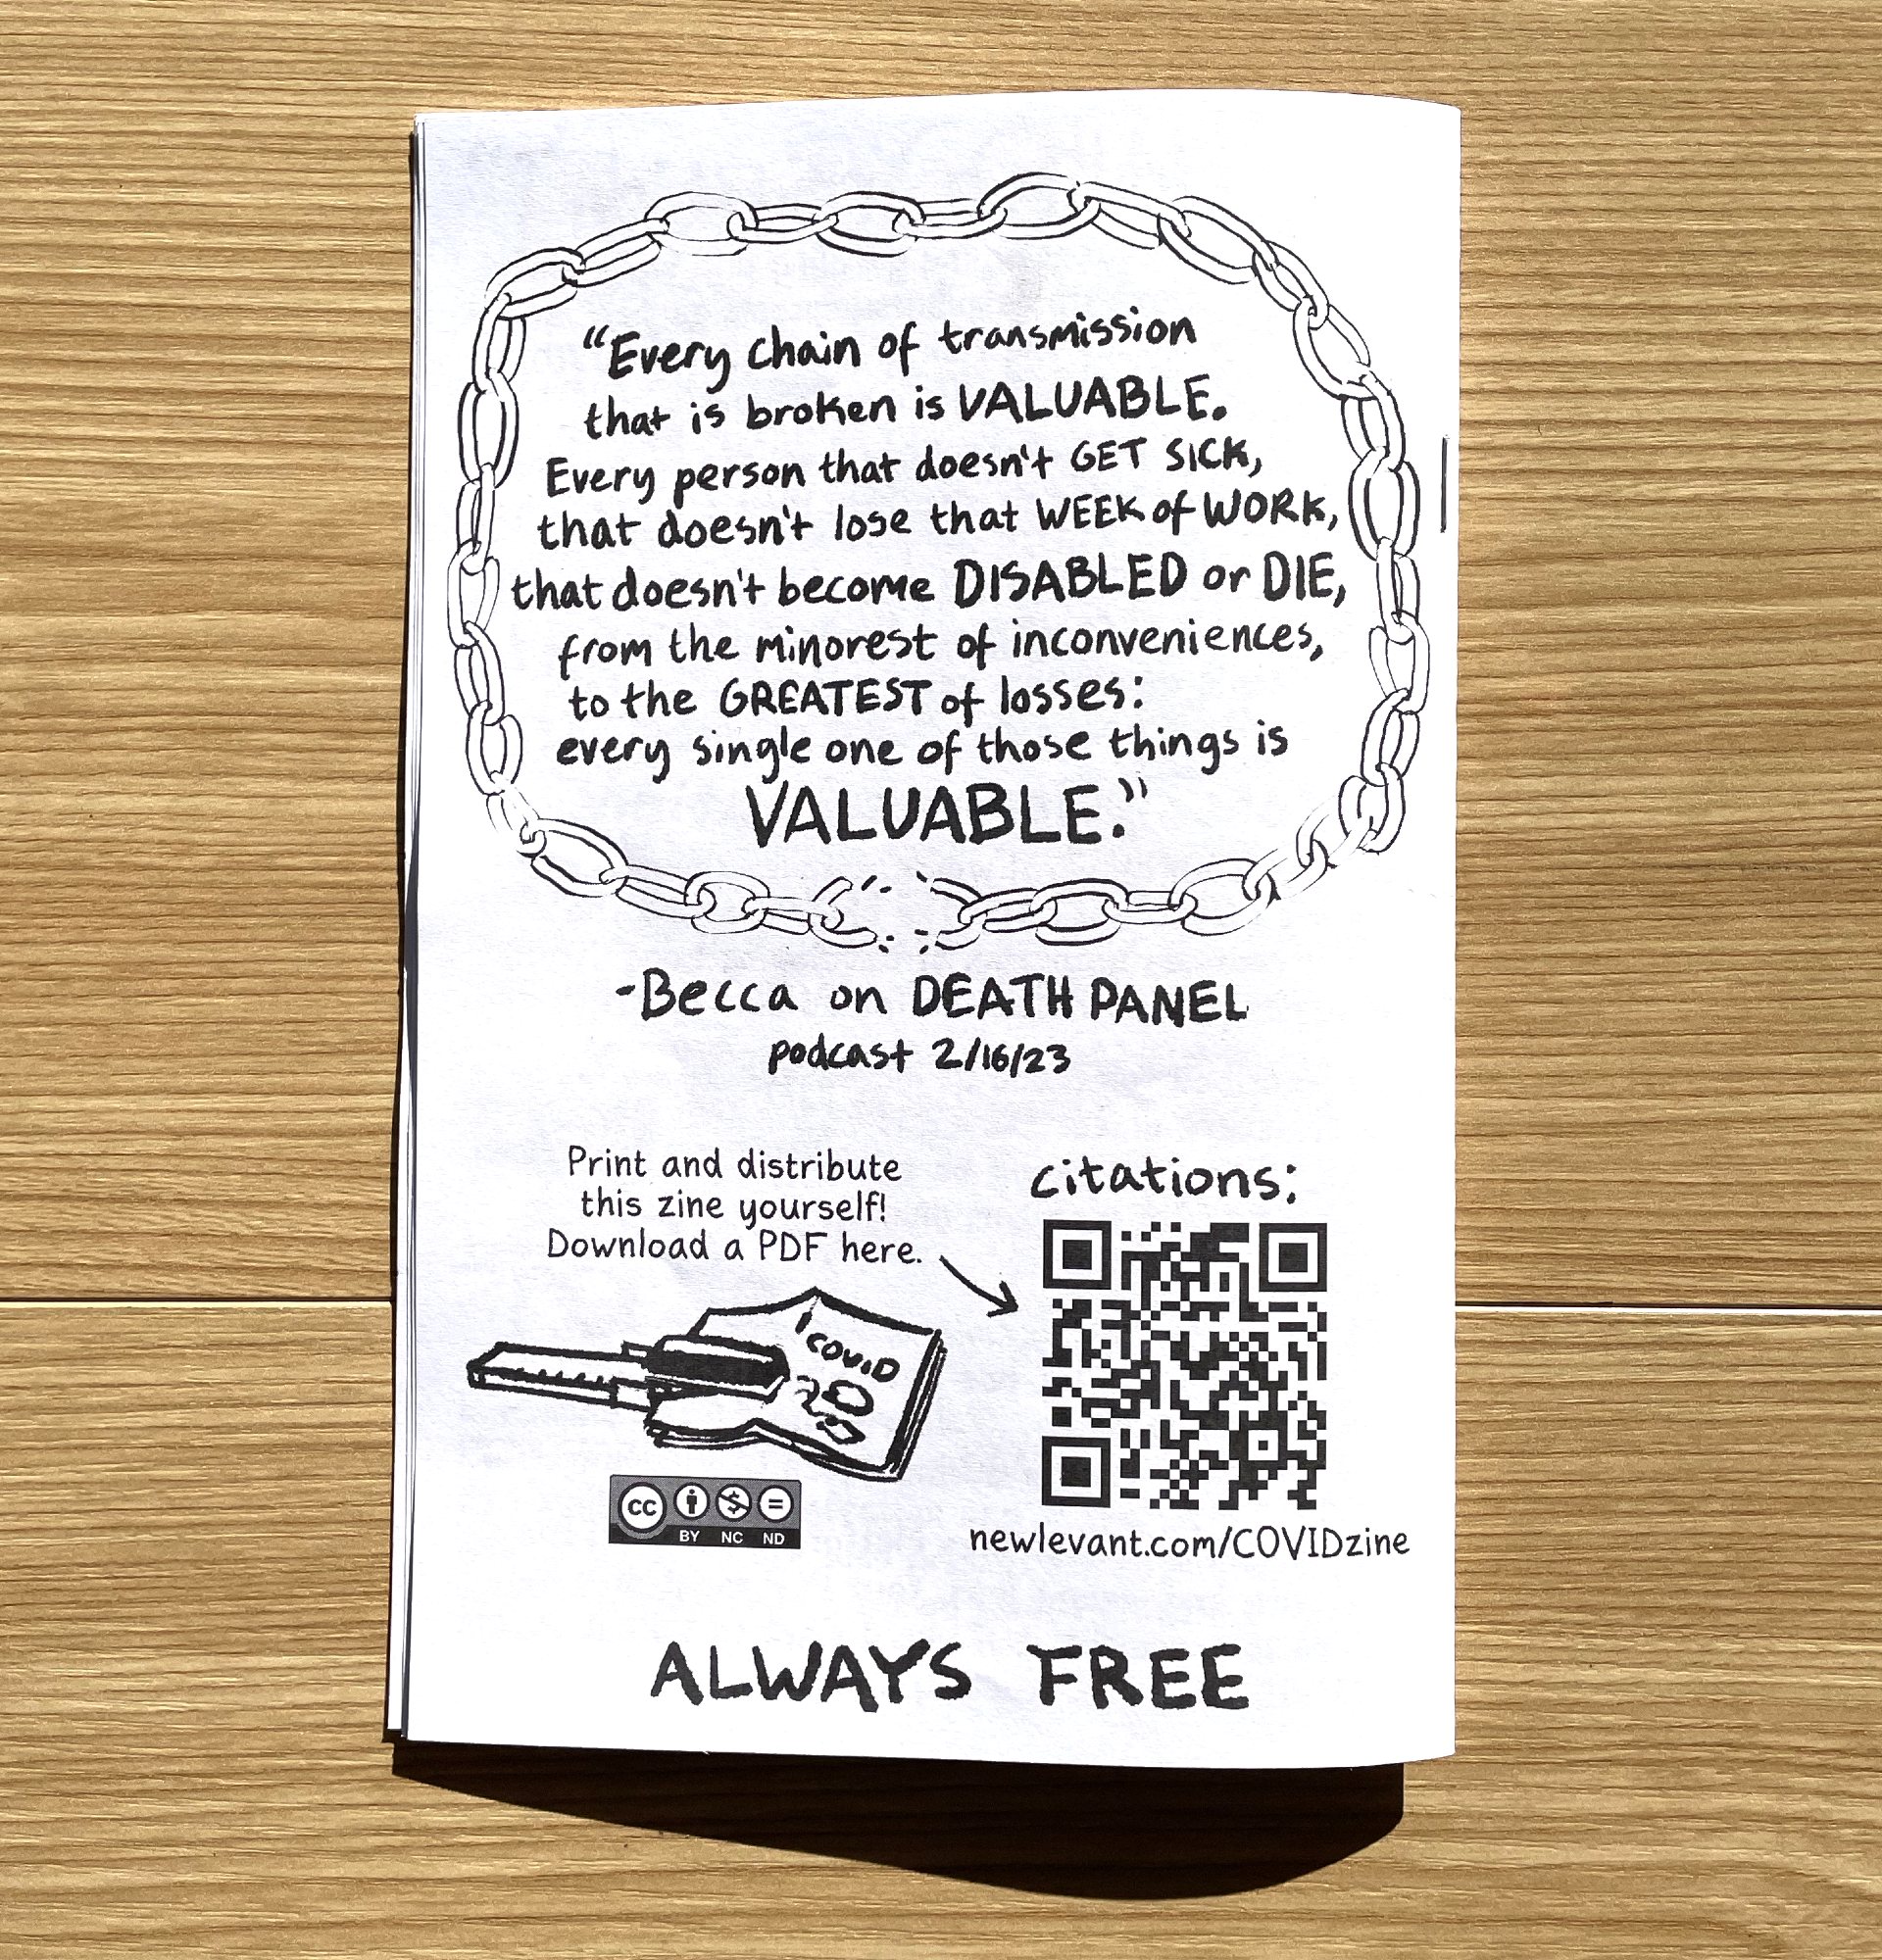 “Every chain of transmission
that is broken is VALUABLE.
Every person that doesn't GET SICK,
that doesn't lose that WEEK of WORK,
that doesn't become DISABLED or DIE,
from the minorest of inconveniences,
to the GREATEST of losses:
every single one of those things is
VALUABLE.”
-Becca on DEATH PANEL
podcast 2/16/23
Print and distribute
this zine yourself!
Download a PDF here.
COVID
citations:
cc
BY NC ND
newlevant.com/COVIDzine
ALWAYS FREE